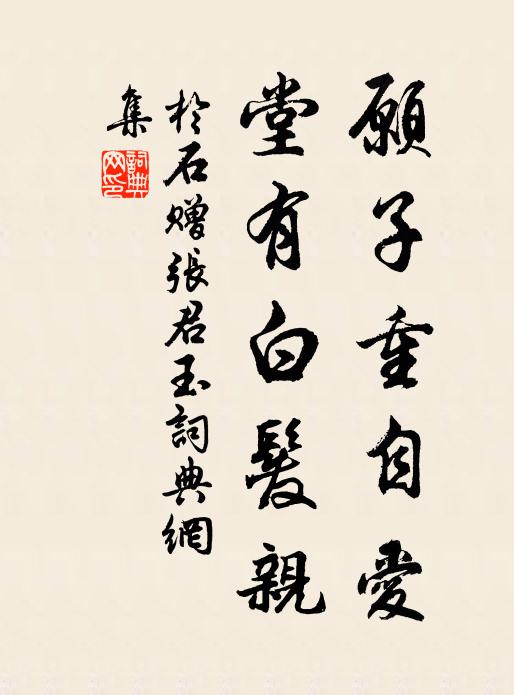 願子重自愛
堂有白髮親
於石贈張君玉詞典網
集
詞典網印